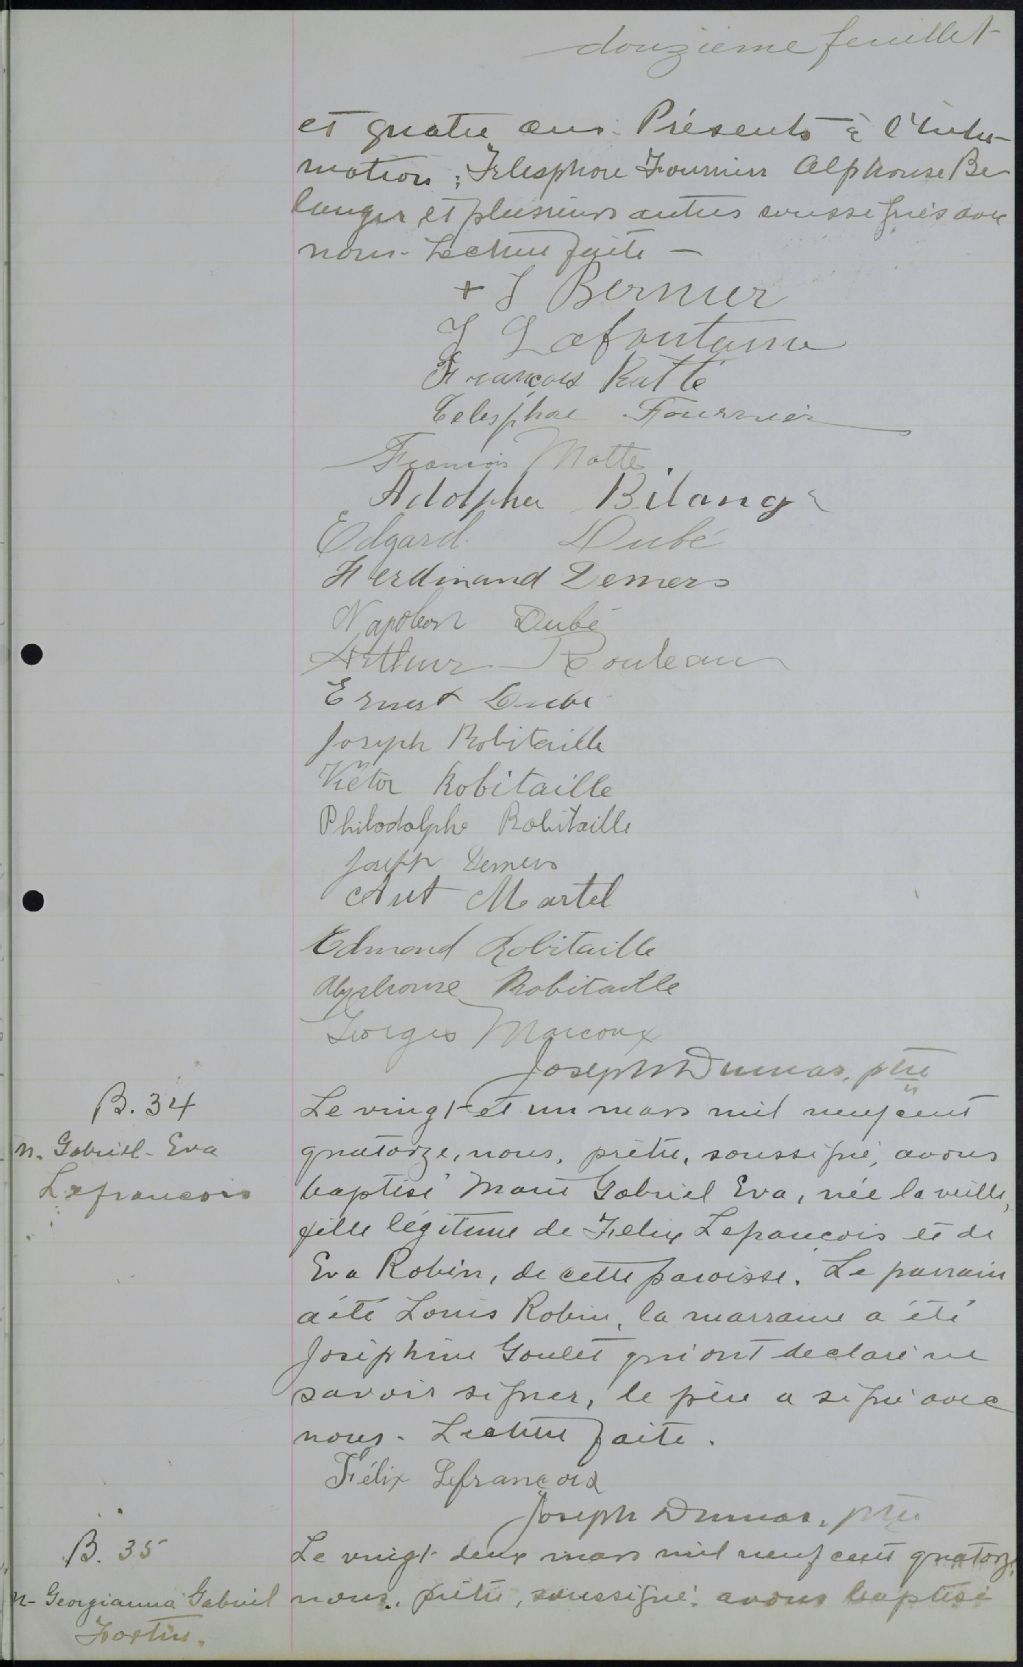 douzième feuillet
et quatre ans. Présents à l'inhu-
mation; Télesphore Fournier Alphonse Be-
langer et plusieurs autres soussignés avec
nous. Lecture faite —
+ J Bernier
J Lafontaine
François Ratté
Telesphore Fournier
Francois Matte
Adolphe Bilanger
Edgard Dubé
Ferdinand Demers
Napoleon Dubé
Arthur Rouleau
Ernest Dubé
Joseph Robitaille
Victor Robitaille
Philodolphe Robitaille
Joseph Demers
Aut Martel
Edmond Robitaille
Alphonse Robitaille
Georges Marcoux
Joseph Dumas, ptre
B. 34
n. Gabriel-Eva
Lefrancois
Le vingt-et un mars mil neuf cent
quatorze, nous, prêtre, soussigné, avons
baptisé Marie Gabriel Eva, née la veille,
fille légitime de Felix Lefrançois et de
Eva Robin, de cette paroisse. Le parrain
a été Louis Robin, la marraine a été
Joséphine Goulet qui ont déclaré ne
savoir signer, le père a signé avec
nous. Lecture faite.
Félix Lefrançois
Joseph Dumas, ptre
B. 35
n- Georgianna Gabriel
Fortin.
Le vingt-deux mars mil neuf cent quatorze,
nous, prêtre, soussigné, avons baptisé